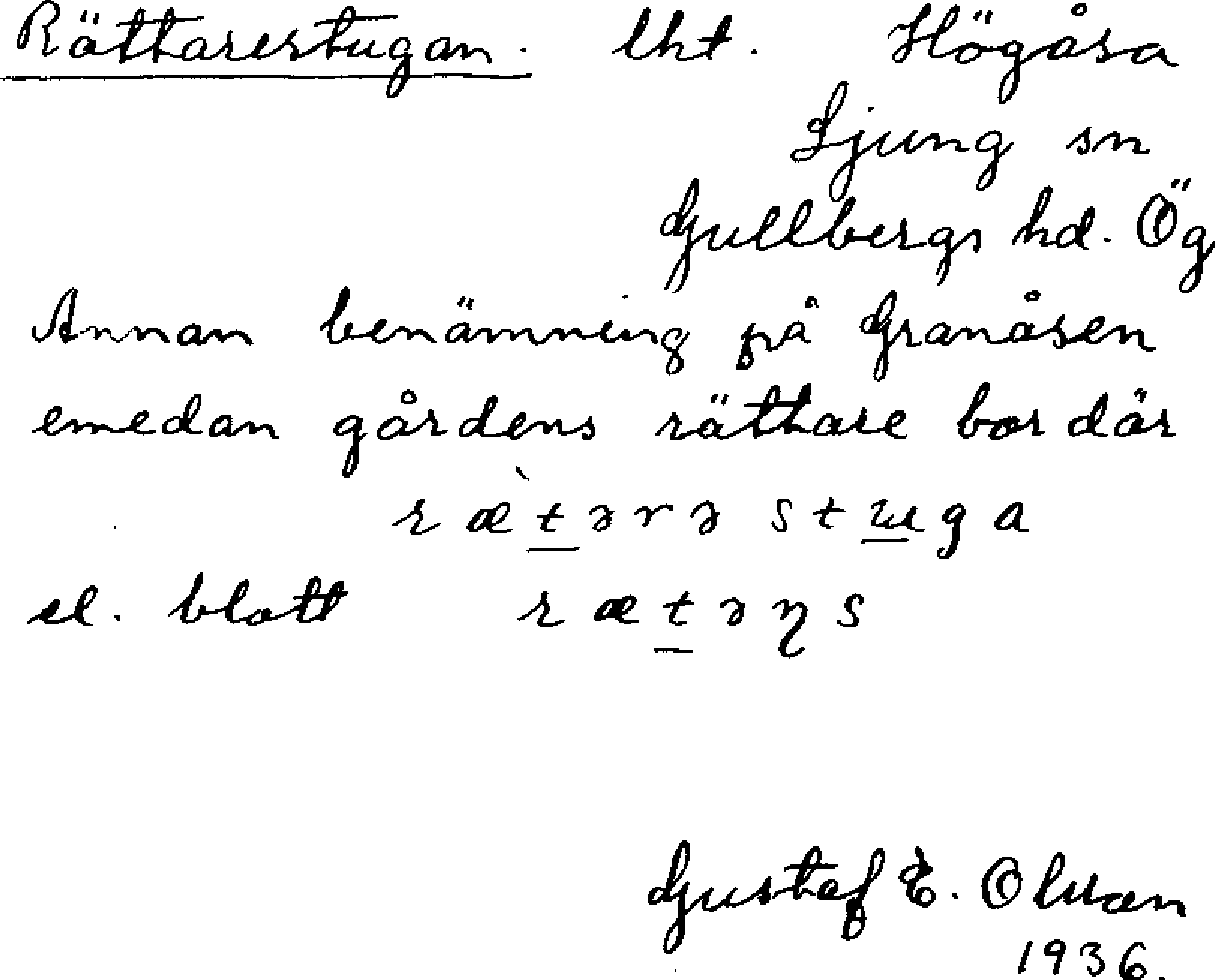 Rättarestugan. lht. Högåsa
Ljung sn
Gullbergs hd. Ög
Annan benämning på Granåsen
emedan gårdens rättare bor där
ræ̀t̲ərə stɯ̲ga
el. blott ræt̲əŋs
Gustaf E. Olsson
1936.